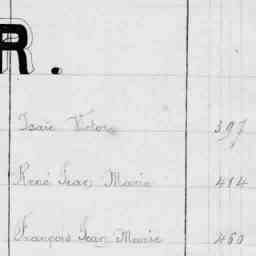 R.
Isaïe Victor 397
René Jean Marie 414
François Jean Marie 460